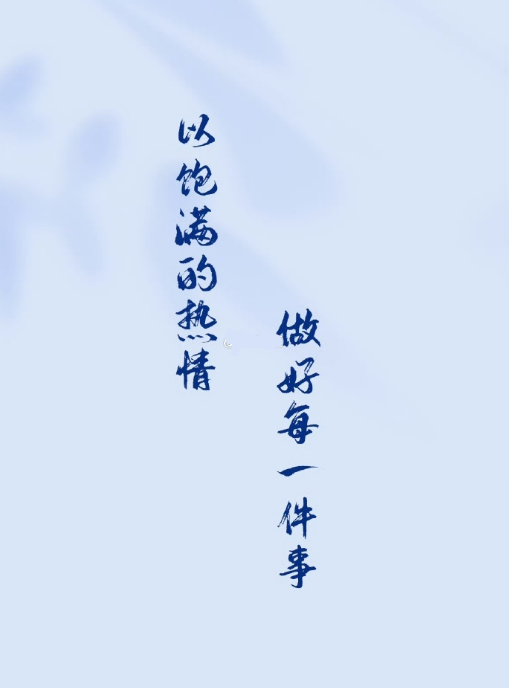 以饱满的热情
做好每一件事